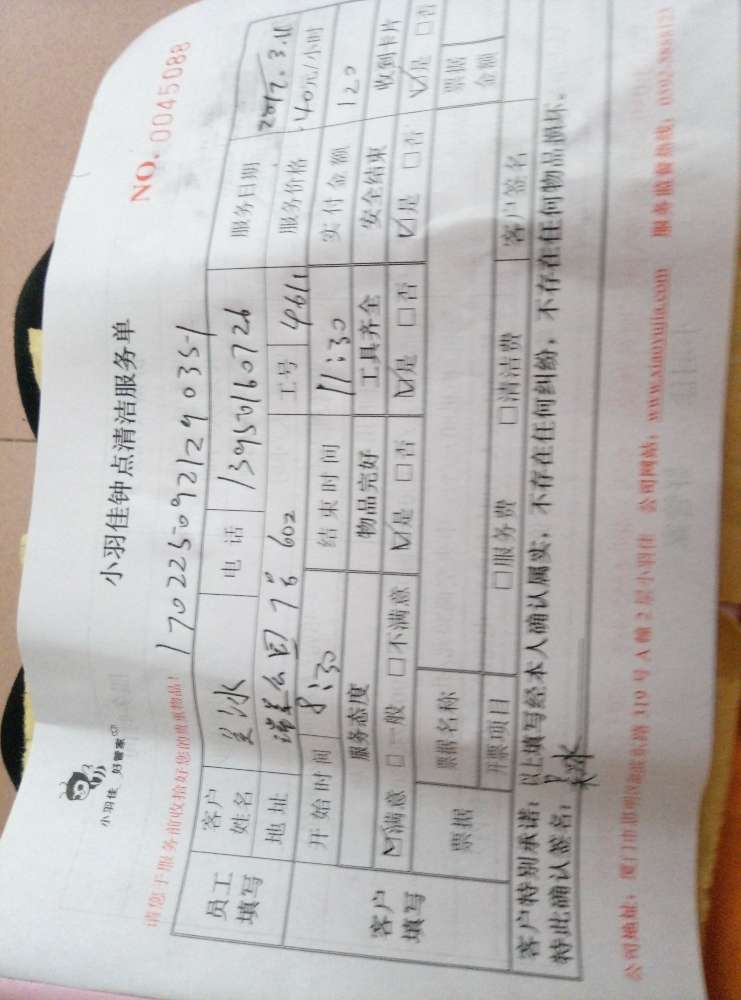 小羽佳 好管家
小羽佳钟点清洁服务单
NO. 0045088
请您于服务前收拾好您的贵重物品!
170225092129035-1
员工填写
客户姓名 冰 电话 13950160726 服务日期 2017.3.
地址 公园 7号 602 工号 4611 服务价格 40元/小时
客户填写
开始时间 8:30 结束时间 11:30 实付金额 120
服务态度 物品完好 工具齐全 安全结束 收到卡片
☑满意 □一般 □不满意 ☑是 □否 ☑是 □否 ☑是 □否 ☑是 □否
票据 票据名称 票据金额
开票项目 □服务费 □清洁费 客户签名
客户特别承诺:以上填写经本人确认属实,不存在任何纠纷,不存在任何物品损坏。
特此确认签名: 冰
公司地址:厦门市思明区湖滨东路 319 号 A 幢 2 层小羽佳 公司网站:www.xiaoyujia.com 服务监督热线:0592-